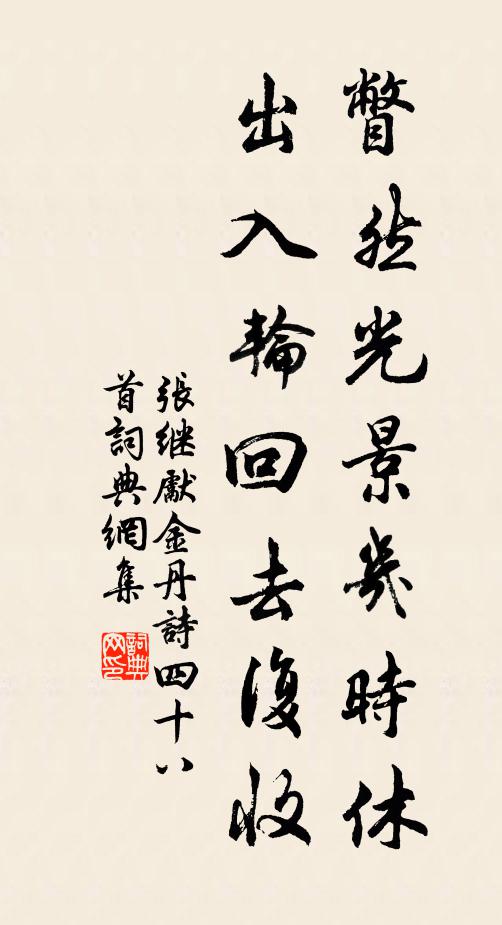 瞥然光景幾時休
出入輪回去復收
張继獻金丹詩四十八
首詞典網集
詞典
网印